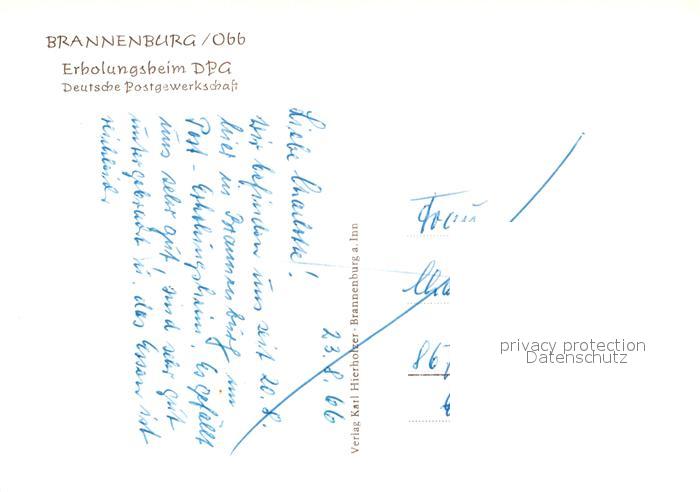 BRANNENBURG / Obb
Erholungsheim DPG
Deutsche Postgewerkschaft
23.8.66
Liebe Charlotte!
wir befinden uns seit 20.8.
hier in Brannenburg im
Post-Erholungsheim. Es gefällt
uns sehr gut! sind sehr gut
untergebracht u. das Essen ist
reichlich.
Verlag Karl Hierholzer · Brannenburg a. Inn
Frau
86
privacy protection
Datenschutz